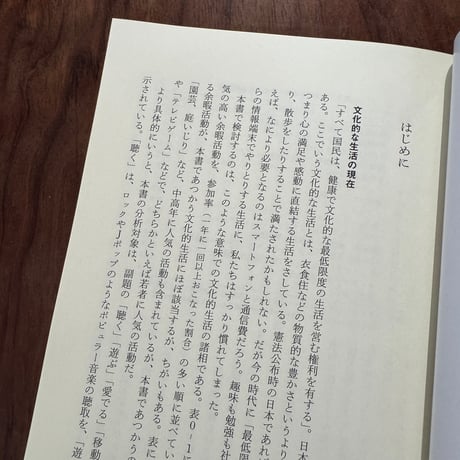 はじめに
文化的な生活の現在
「すべて国民は、健康で文化的な最低限度の生活を営む権利を有する」。日本
ある。ここでいう文化的な生活とは、衣食住などの物質的な豊かさというより
つまり心の満足や感動に直結する生活をさしている。憲法公布時の日本であれば
り、散歩をしたりすることで満たされたかもしれない。だが今の時代に「最低限
えば、なにより必要となるのはスマートフォンと通信費だろう。趣味も勉強も社
らの情報端末でやりとりする生活に、私たちはすっかり慣れてしまった。
本書で検討するのは、このような意味での文化的生活の諸相である。表0-1に
気の高い余暇活動を、参加率（一年に一回以上おこなった割合）の多い順に並べてい
る余暇活動が、本書であつかう文化的生活にほぼ該当するが、ちがいもある。表に
「園芸、庭いじり」など、中高年に人気の活動も含まれているが、本書であつかうの
や「テレビゲーム」などで、どちらかといえば若者に人気の活動だ。
より具体的にいうと、本書の分析対象は、副題の「聴く」「遊ぶ」「愛でる」「移動
示されている。「聴く」は、ロックやJポップのようなポピュラー音楽の聴取を、「遊